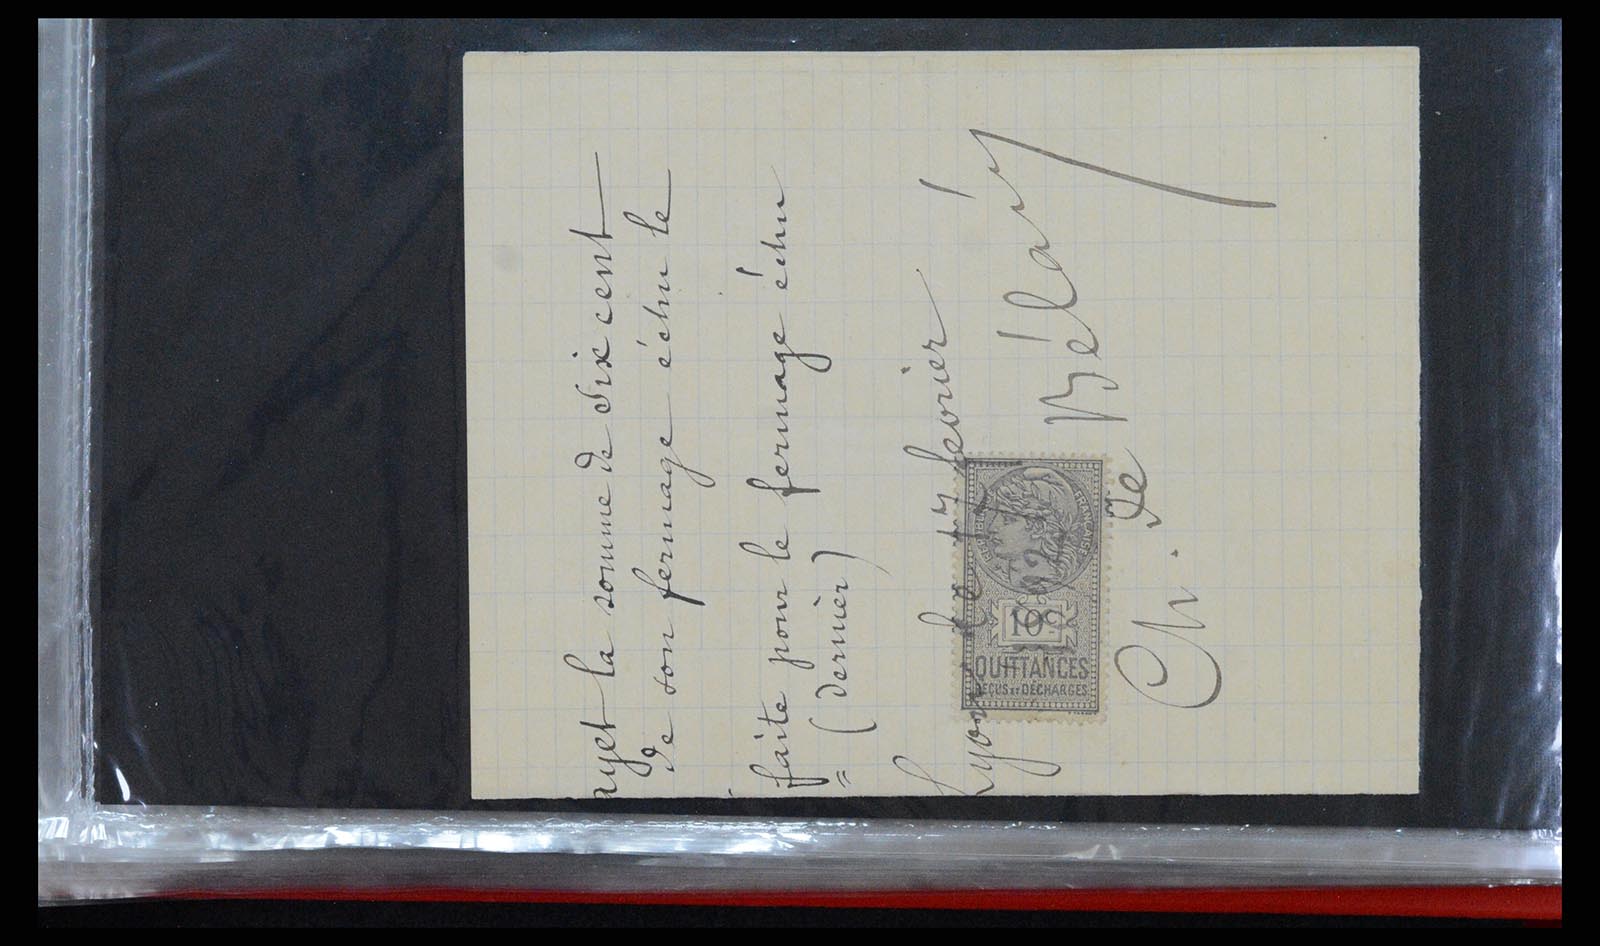 ayet la somme de six cent
de son fermage échu le
faite pour le fermage échu
= (dernier)
Lyon le 17 fevrier
1921
RÉPUBLIQUE FRANÇAISE
10c
QUITTANCES
REÇUS ET DÉCHARGES
Ch. de Béla